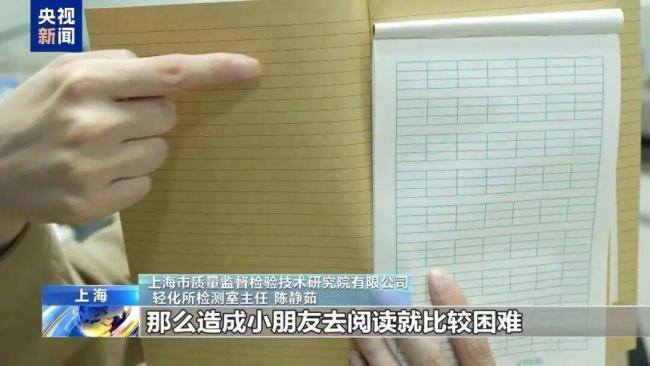 央视
新闻
上海市质量监督检验技术研究院有限公司
上海
轻化所检测室主任 陈静茹
那么造成小朋友去阅读就比较困难